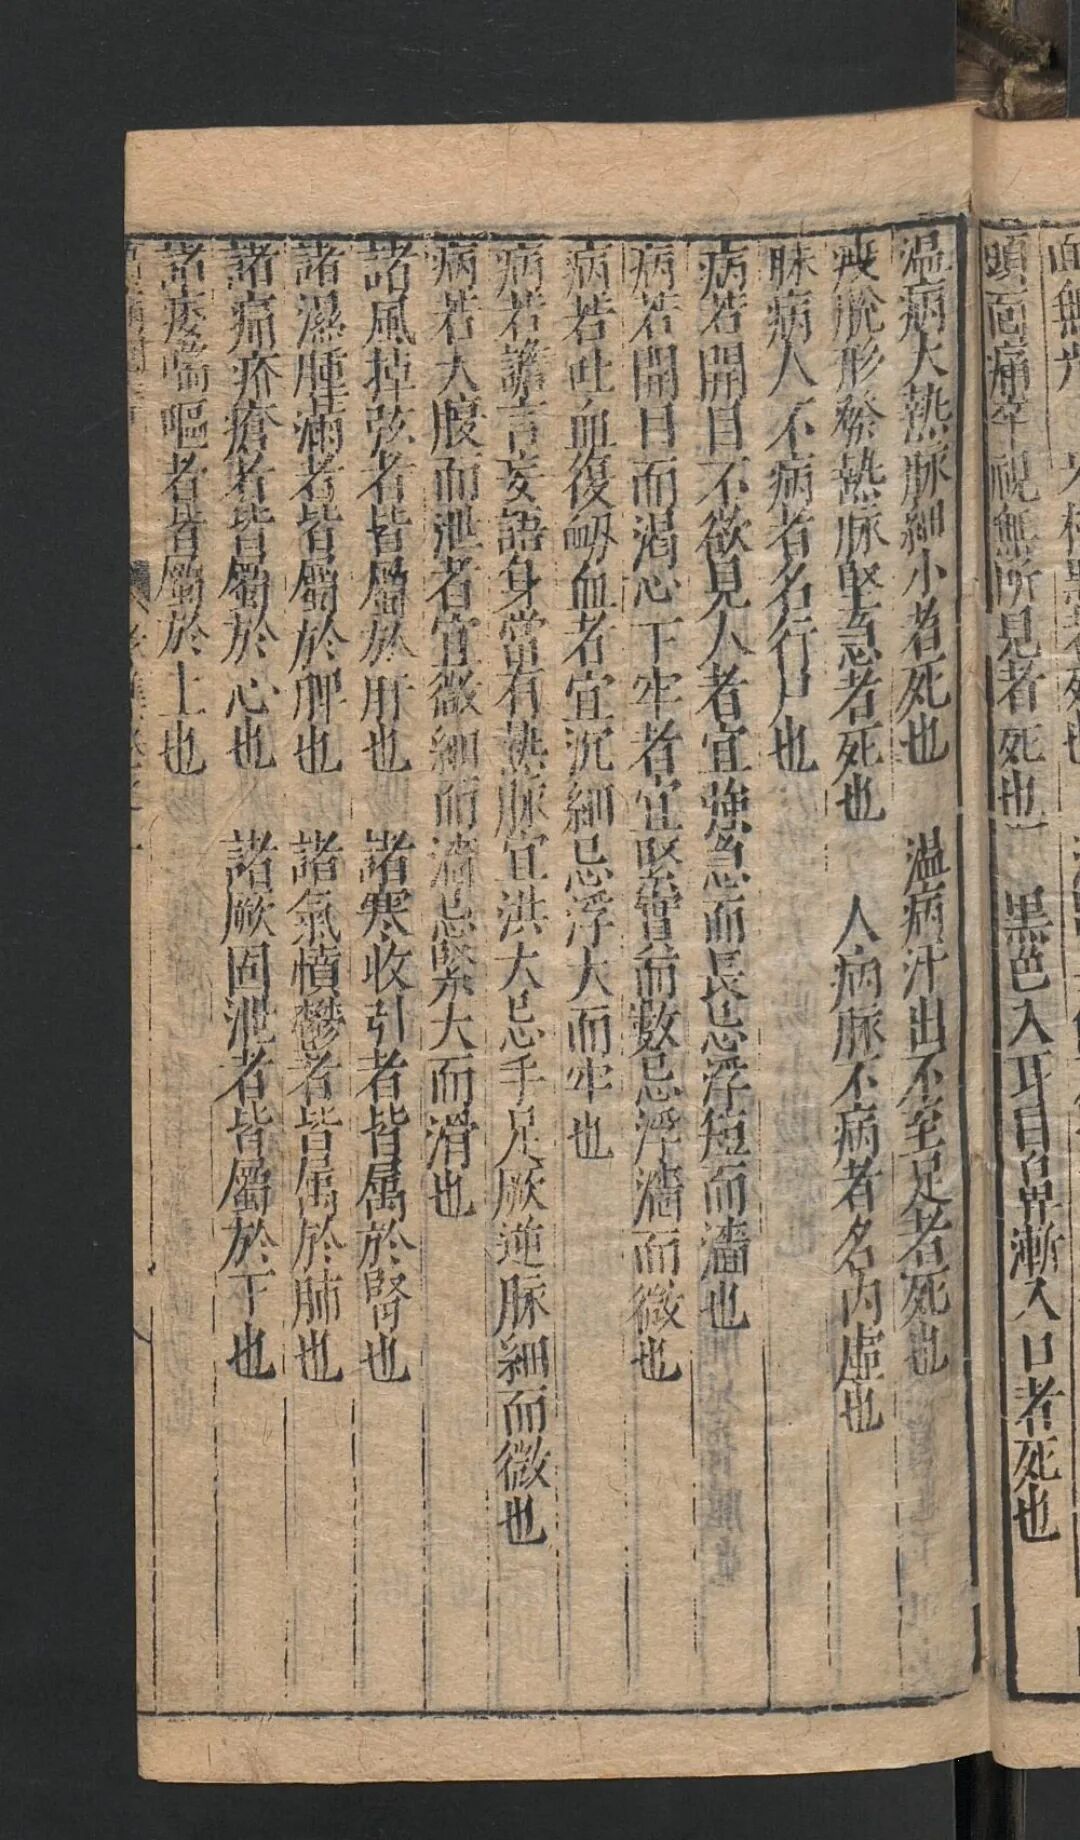 頭面痛卒視無所見者死也　黑色入耳目鼻漸入口者死也
温病大熱脉細小者死也　温病汗出不至足者死也
疾脫形發熱脉堅急者死也　人病脉不病者名內虛也
脉病人不病者名行尸也
病若開目不欲見人者宜強急而長忌浮短而濇也
病若開目而渴心下牢者宜堅實而數忌浮濇而微也
病若吐血復衂血者宜沉細忌浮大而牢也
病若譫言妄語身當有熱脉宜洪大忌手足厥逆脉細而微也
病若大腹而泄者宜微細而濇忌緊大而滑也
諸風掉弦者皆屬於肝也　諸寒收引者皆属於腎也
諸濕腫滿者皆屬於脾也　諸氣憤鬱者皆属於肺也
諸痛疥瘡者皆屬於心也　諸厥固泄者皆屬於下也
諸痿喘嘔者皆屬於上也